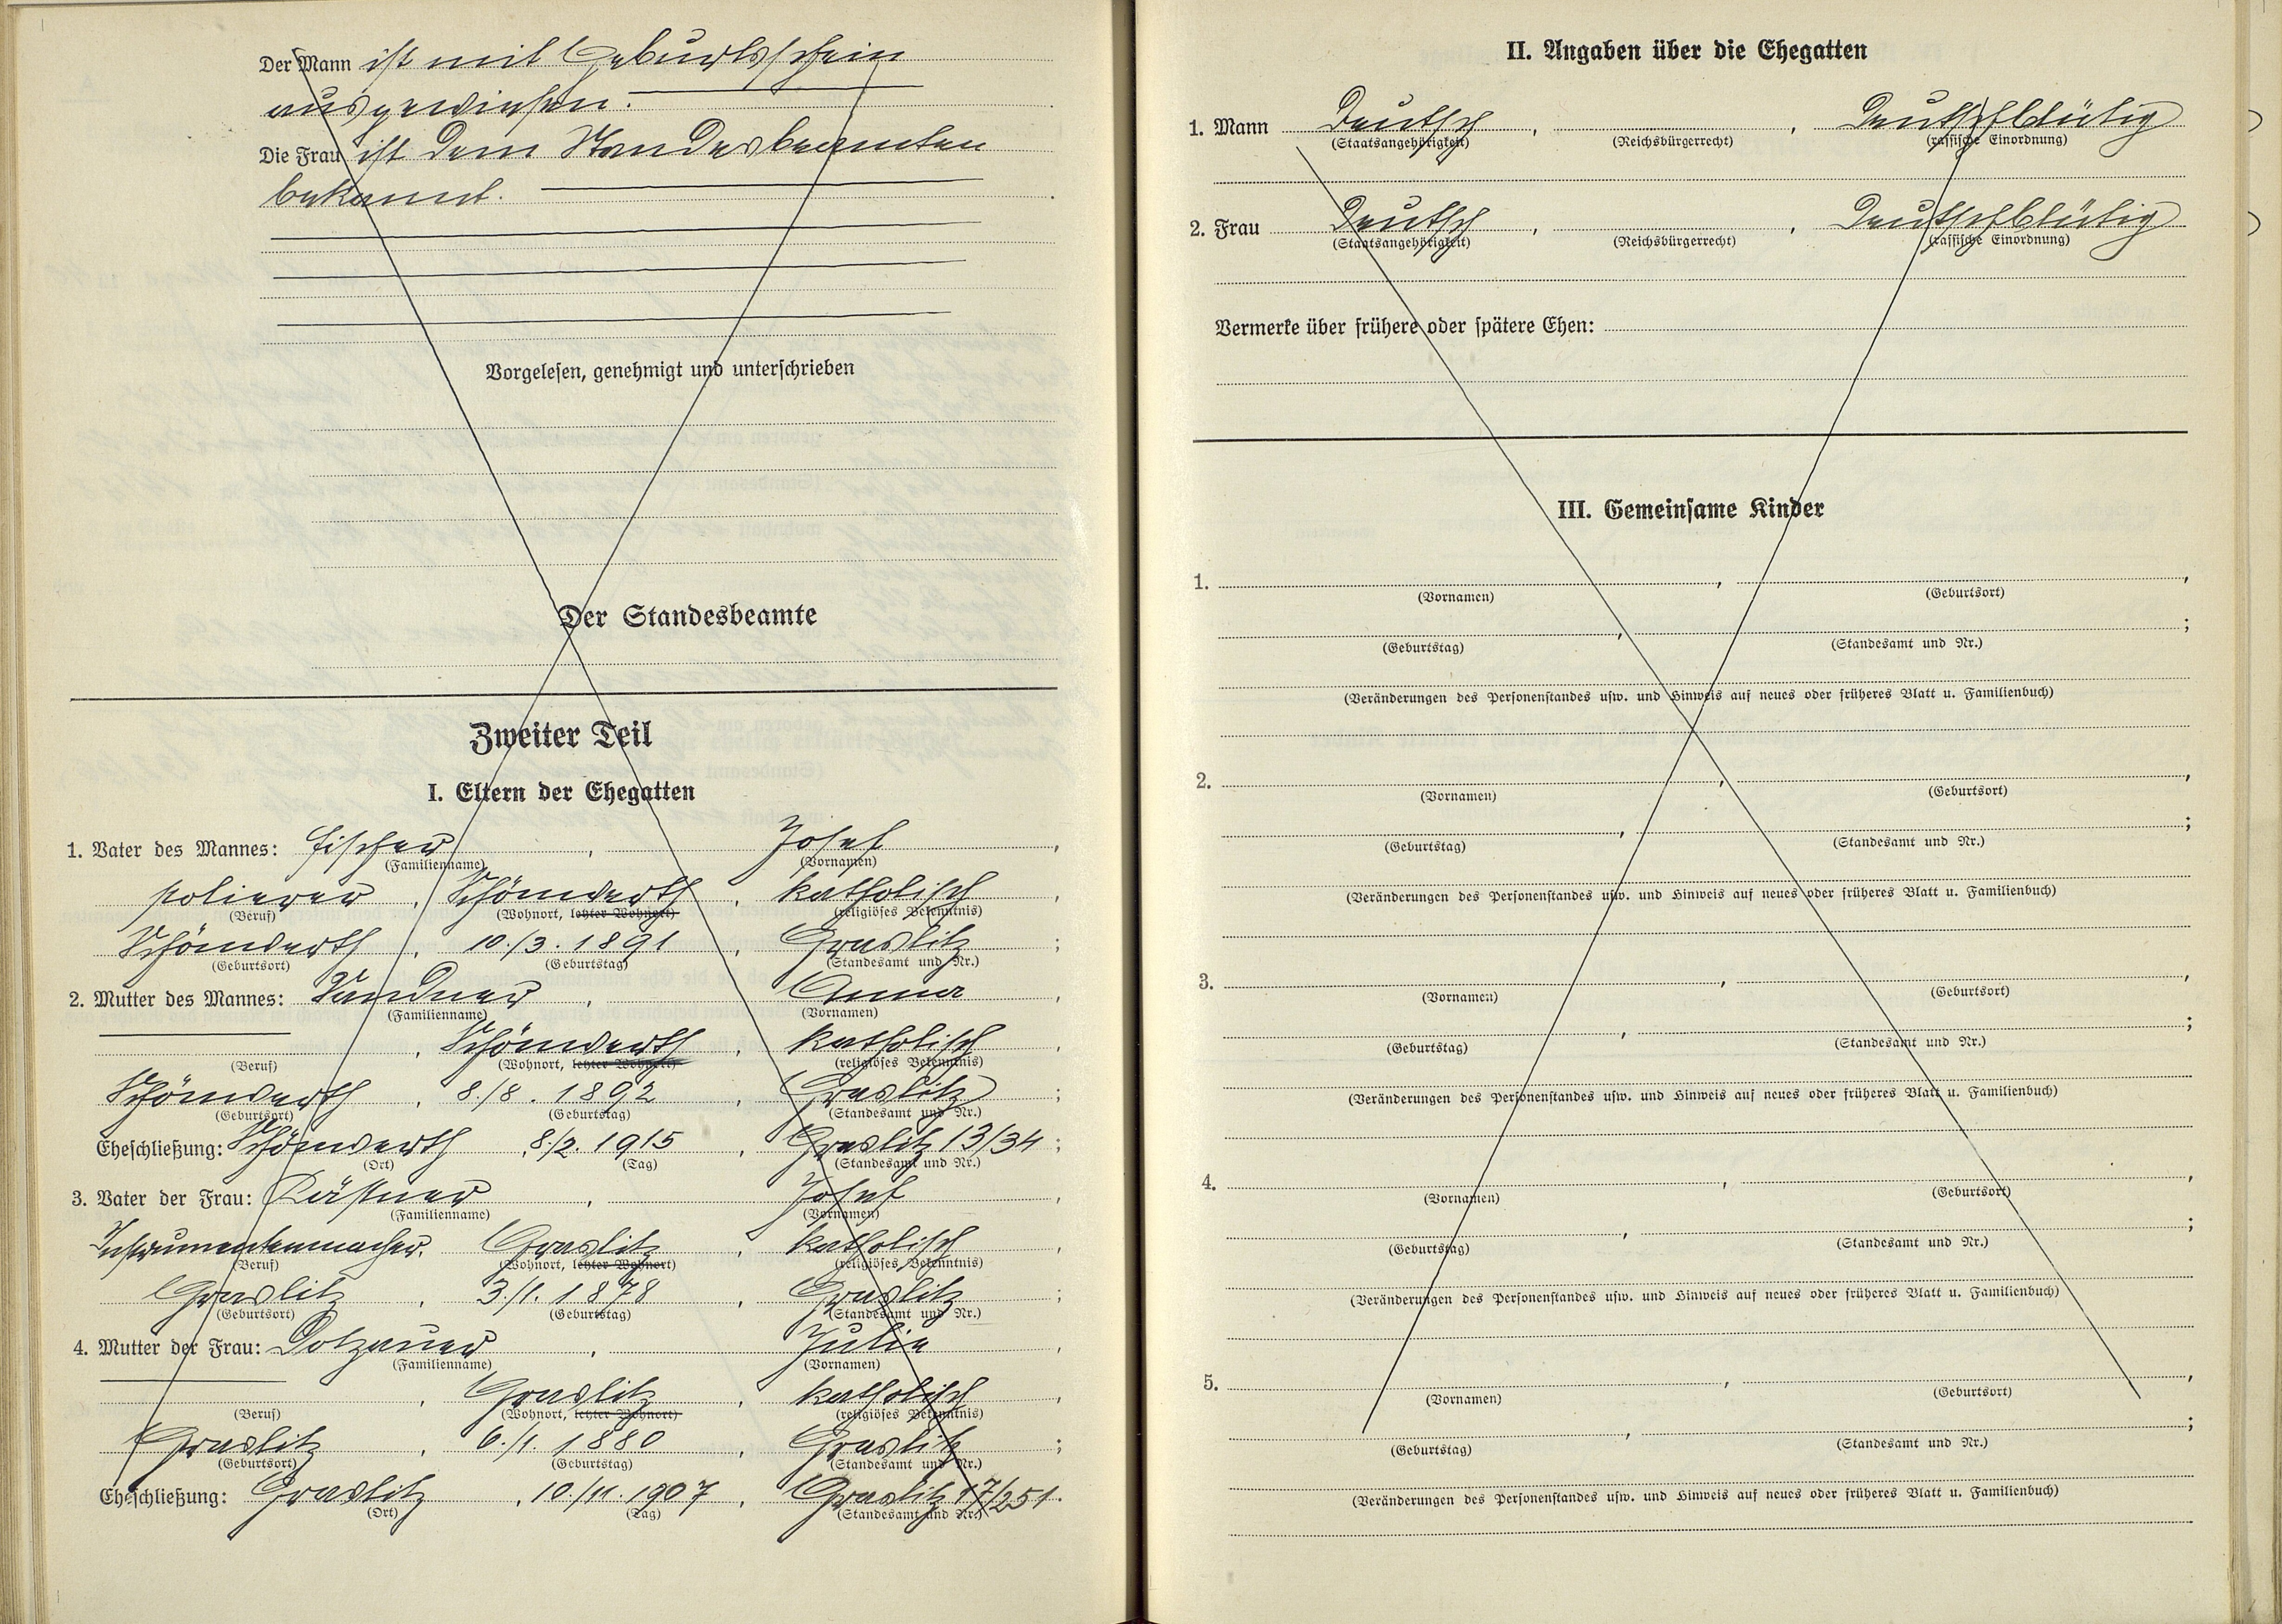 Der Mann ist mit Geburtsschein
ausgewiesen.
Die Frau ist dem Standesbeamten
bekannt.
Vorgelesen, genehmigt und unterschrieben
Der Standesbeamte
Zweiter Teil
I. Eltern der Ehegatten
1. Vater des Mannes: Fischer, Josef,
(Familienname) (Vornamen)
Polierer, Schönwerth, katholisch,
(Beruf) (Wohnort, letzter Wohnort) (religiöses Bekenntnis)
Schönwerth, 10./3. 1891, Graslitz;
(Geburtsort) (Geburtstag) (Standesamt und Nr.)
2. Mutter des Mannes: Sandner, Anna,
(Familienname) (Vornamen)
, Schönwerth, katholisch,
(Beruf) (Wohnort, letzter Wohnort) (religiöses Bekenntnis)
Schönwerth, 8./8. 1892, Graslitz;
(Geburtsort) (Geburtstag) (Standesamt und Nr.)
Eheschließung: Schönwerth, 8./2. 1915, Graslitz 13/34;
(Ort) (Tag) (Standesamt und Nr.)
3. Vater der Frau: Kästner, Josef,
(Familienname) (Vornamen)
Instrumentenmacher, Graslitz, katholisch,
(Beruf) (Wohnort, letzter Wohnort) (religiöses Bekenntnis)
Graslitz, 3./1. 1878, Graslitz;
(Geburtsort) (Geburtstag) (Standesamt und Nr.)
4. Mutter der Frau: Dotzauer, Julie,
(Familienname) (Vornamen)
, Graslitz, katholisch,
(Beruf) (Wohnort, letzter Wohnort) (religiöses Bekenntnis)
Graslitz, 6./1. 1880, Graslitz;
(Geburtsort) (Geburtstag) (Standesamt und Nr.)
Eheschließung: Graslitz, 10./11. 1907, Graslitz 17/251.
(Ort) (Tag) (Standesamt und Nr.)
II. Angaben über die Ehegatten
1. Mann Deutsch, , Deutschblütig
(Staatsangehörigkeit) (Reichsbürgerrecht) (rassische Einordnung)
2. Frau Deutsch, , Deutschblütig
(Staatsangehörigkeit) (Reichsbürgerrecht) (rassische Einordnung)
Vermerke über frühere oder spätere Ehen:
III. Gemeinsame Kinder
1. , ,
(Vornamen) (Geburtsort)
, ;
(Geburtstag) (Standesamt und Nr.)
(Veränderungen des Personenstandes usw. und Hinweis auf neues oder früheres Blatt u. Familienbuch)
2. , ,
(Vornamen) (Geburtsort)
, ;
(Geburtstag) (Standesamt und Nr.)
(Veränderungen des Personenstandes usw. und Hinweis auf neues oder früheres Blatt u. Familienbuch)
3. , ,
(Vornamen) (Geburtsort)
, ;
(Geburtstag) (Standesamt und Nr.)
(Veränderungen des Personenstandes usw. und Hinweis auf neues oder früheres Blatt u. Familienbuch)
4. , ,
(Vornamen) (Geburtsort)
, ;
(Geburtstag) (Standesamt und Nr.)
(Veränderungen des Personenstandes usw. und Hinweis auf neues oder früheres Blatt u. Familienbuch)
5. , ,
(Vornamen) (Geburtsort)
, ;
(Geburtstag) (Standesamt und Nr.)
(Veränderungen des Personenstandes usw. und Hinweis auf neues oder früheres Blatt u. Familienbuch)